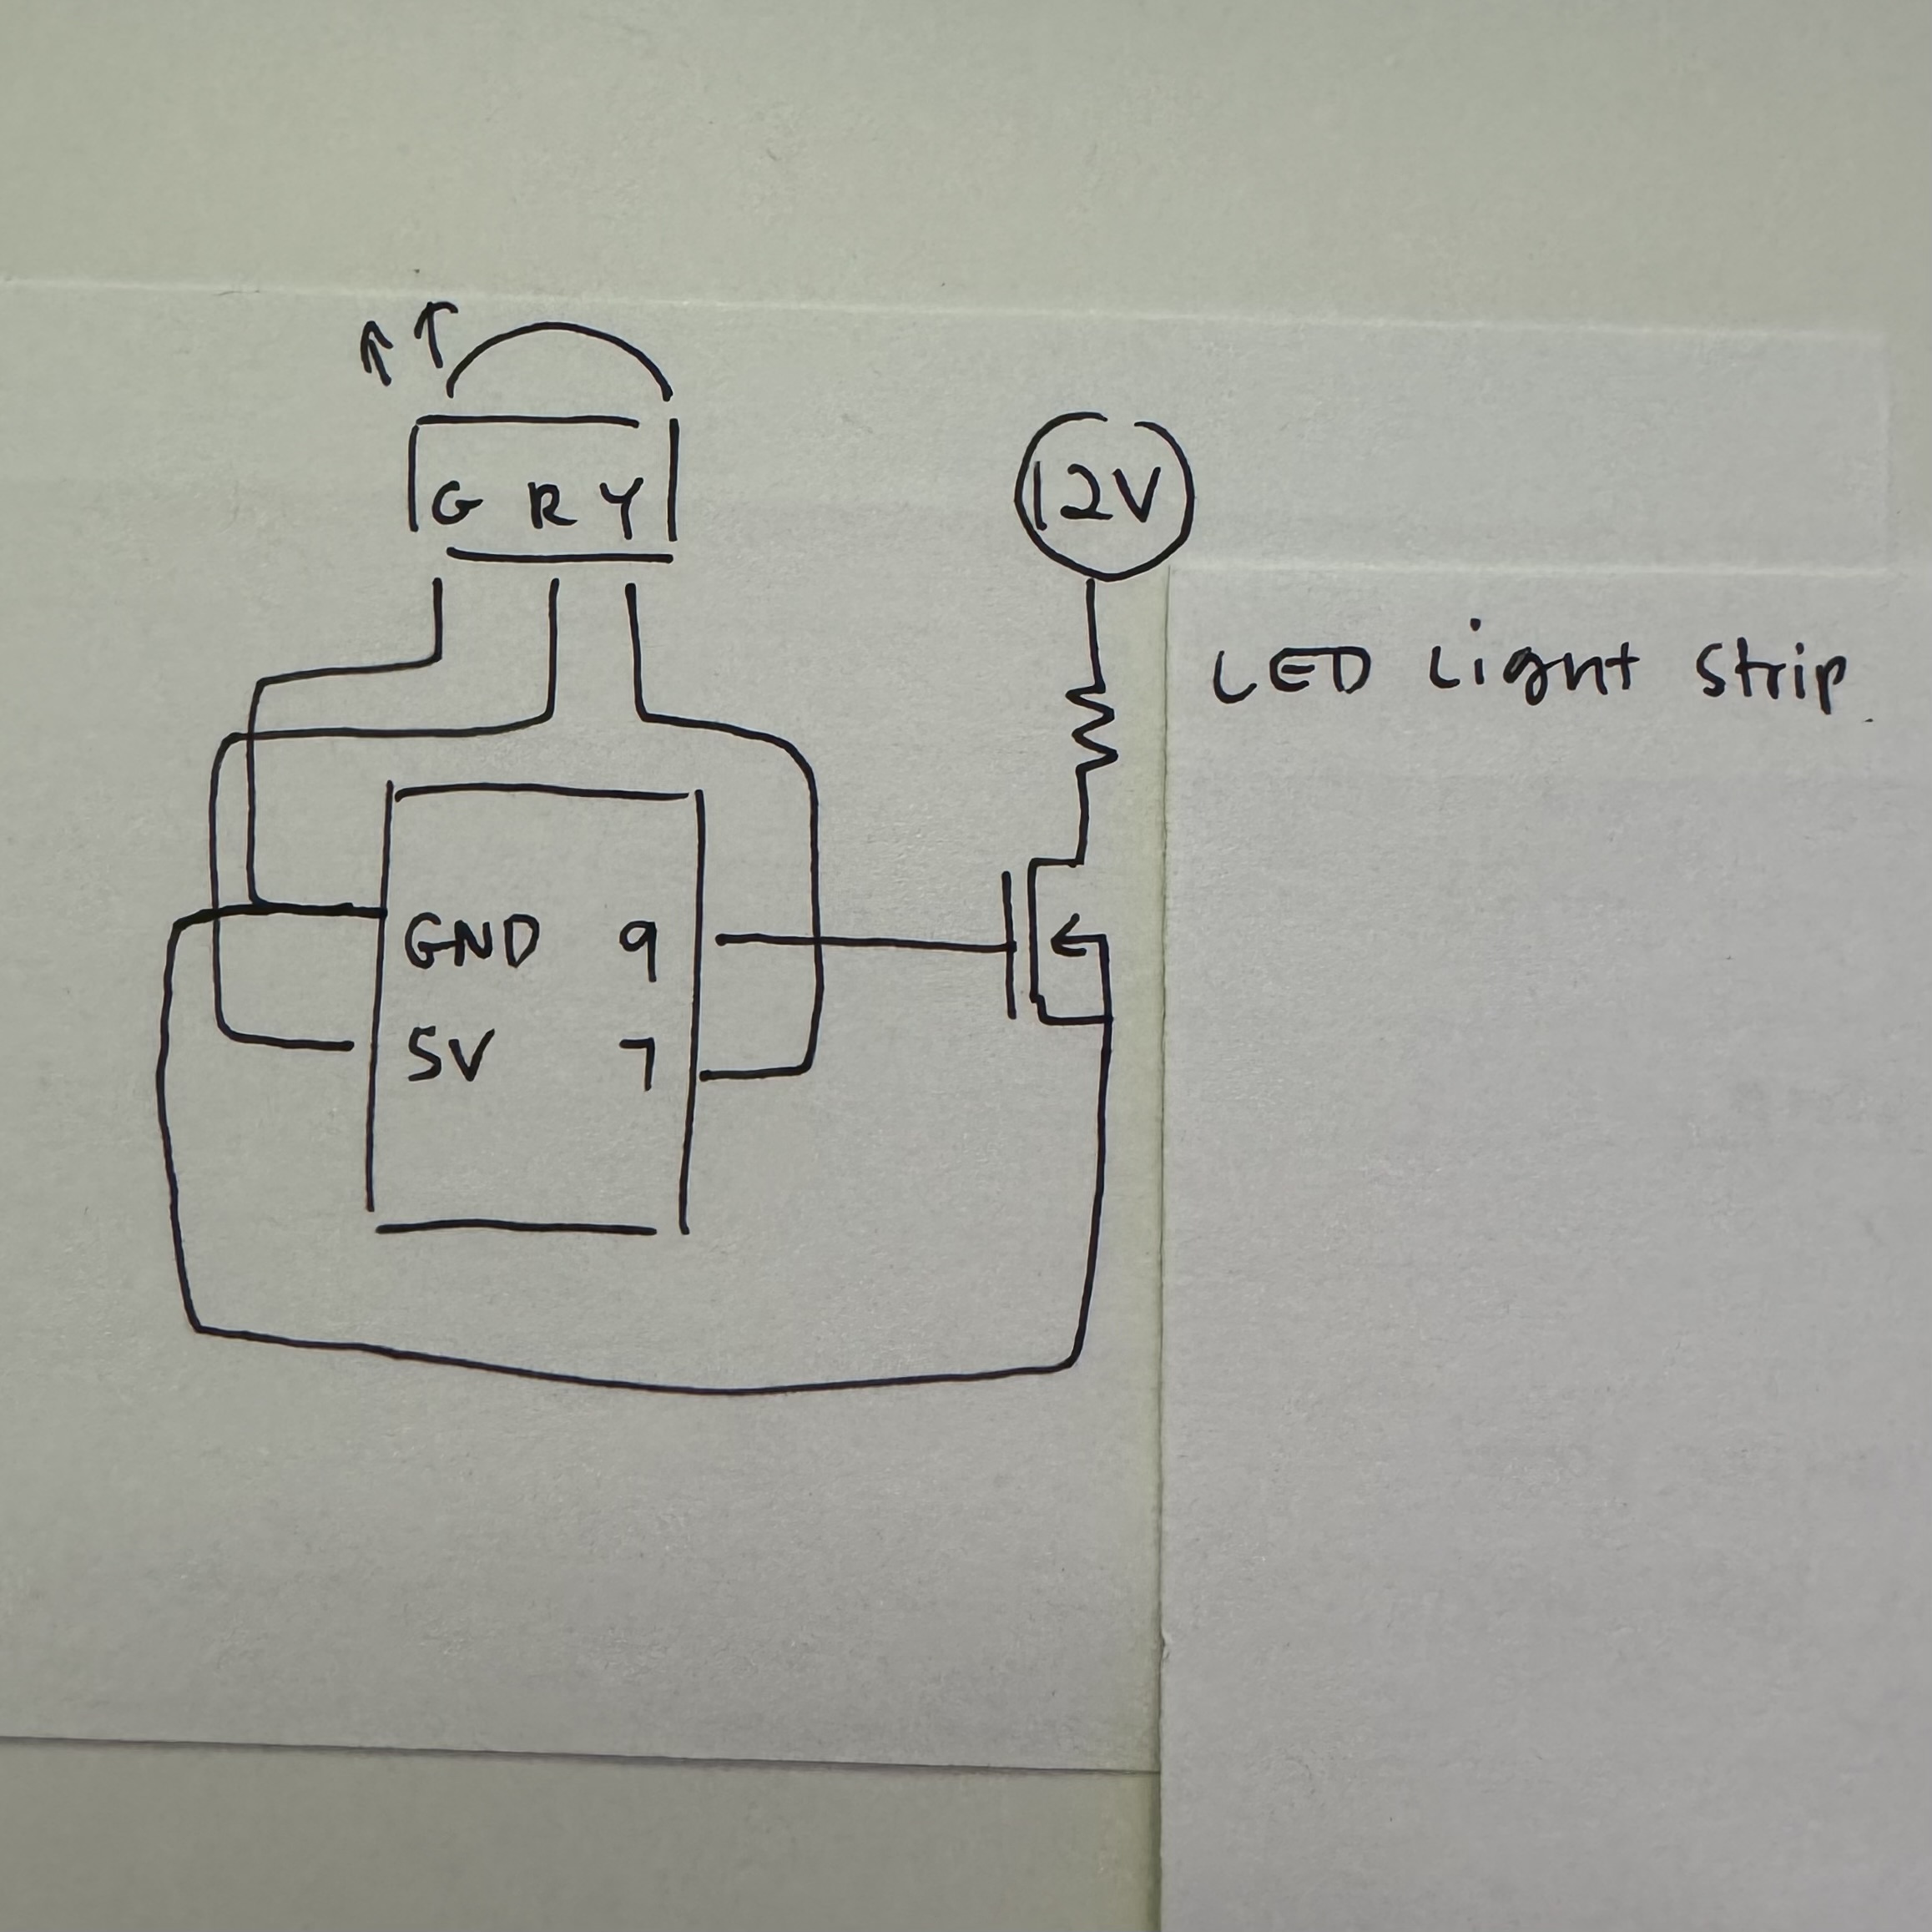 G R Y
12V
LED Light Strip
GND 9
5V 7